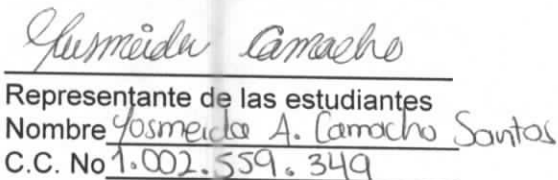 Yusmeida Camacho
Representante de las estudiantes
Nombre Yosmeida A. Camacho Santos
C.C. No 1.002.559.349